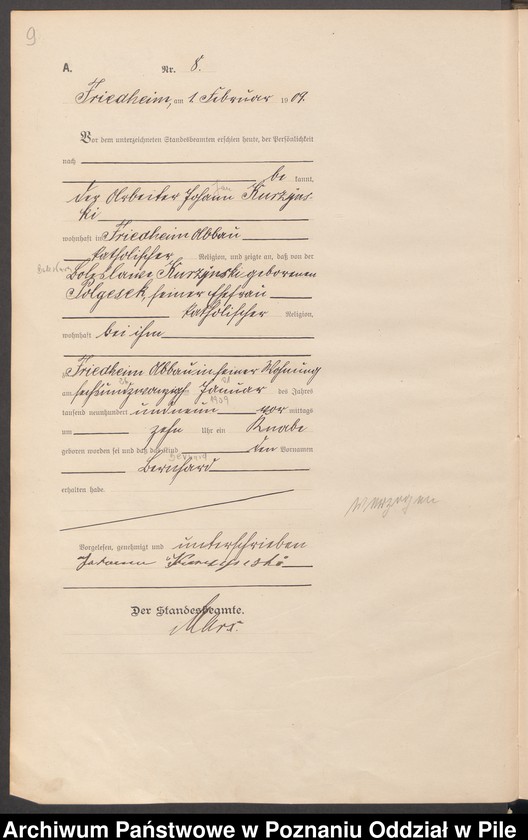 9
A. Nr. 8.
Friedheim, am 1. Februar 1909.
Vor dem unterzeichneten Standesbeamten erschien heute, der Persönlichkeit
nach
be kannt,
Jan
der Arbeiter Johann Kurzyns-
ki
wohnhaft in Friedheim Abbau
katholischer Religion, und zeigte an, daß von der
Boleslawe Kurzynski geborenen
Polgesek, seiner Ehefrau
katholischer Religion,
wohnhaft bei ihm
zu Friedheim Abbau in seiner Wohnung
26
am sechsundzwanzigsten Januar des Jahres
1909
tausend neunhundert und neun vor mittags
um zehn Uhr ein Knabe
geboren worden sei und daß das Kind den Vornamen
Bernard
Bernhard
erhalten habe.
Vorgelesen, genehmigt und unterschrieben
Johann Kurzynski
Der Standesbeamte.
Archiwum Państwowe w Poznaniu Oddział w Pile